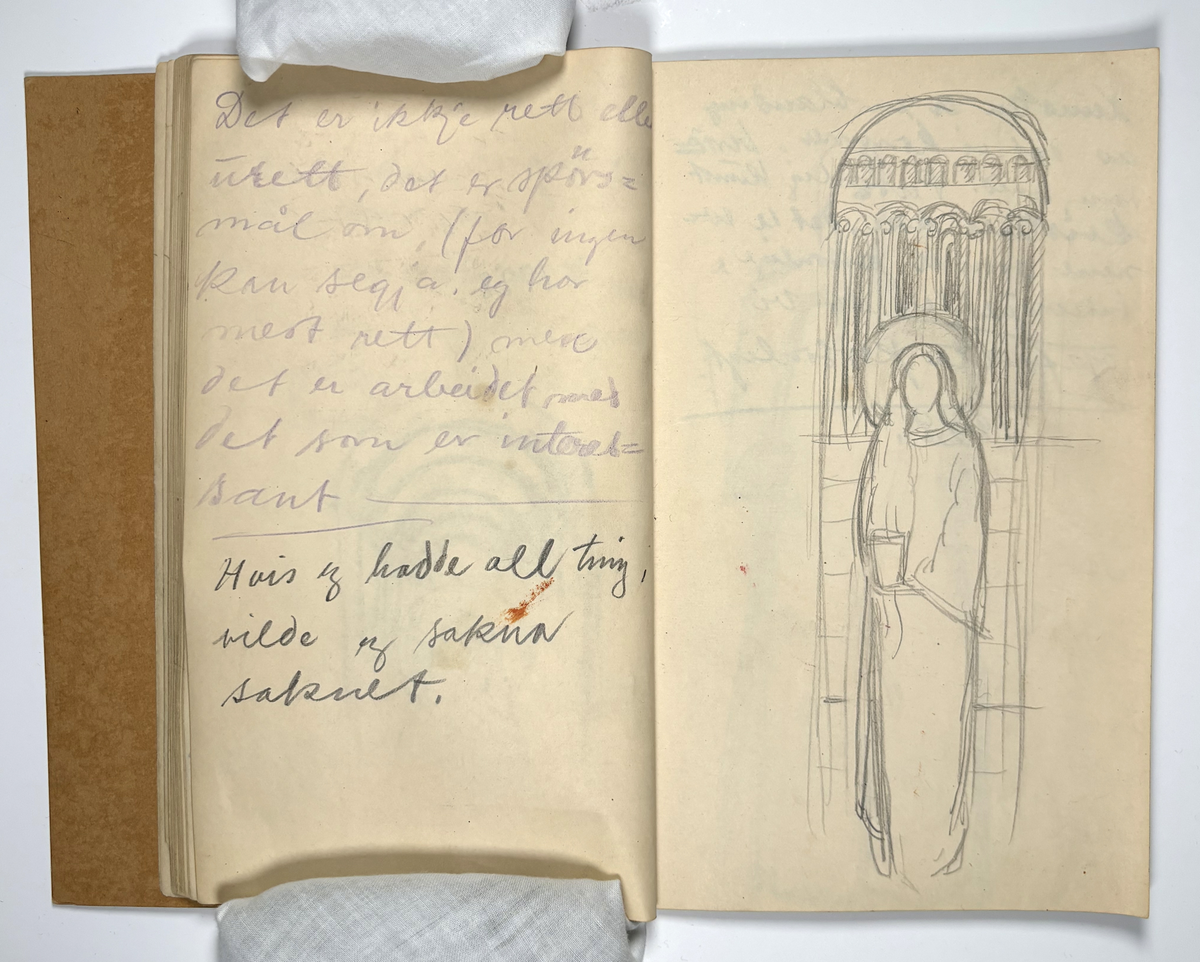 Det er ikkje rett elle
urett, det er spörs=
mål om (for ingen
kan segja. eg har
mest rett) men
det er arbeidet med
det som er interes=
sant
Hvis eg hadde all ting,
vilde eg sakna
saknet.